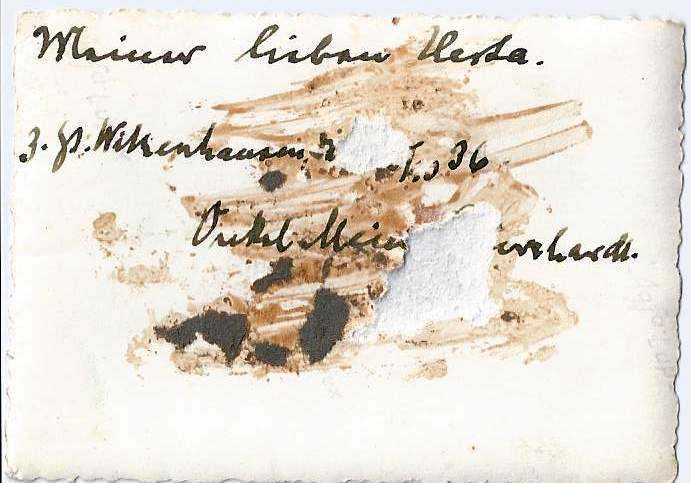 Meiner lieben Herta.
z. Zt. Witzenhausen, 36
Onkel Mein erhardt.